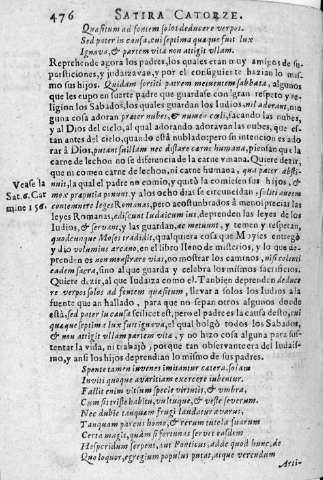 476 SATIRA CATORZE.
Quæsitum ad fontem solos deducere verpos.
Sed pater in causa, cui septima quæque fuit lux
Ignava, & partem vitæ non attigit vllam.
Reprehende agora los padres, los quales eran muy amigos de su
persticiones, y judaizavan, y por el consiguiente hazian lo mis
mo sus hijos. Quidam sortiti patrem metuentem sabbata, algunos
que les cupo en suerte padre que guardasse con gran respeto y re-
ligion los Sabados, los quales guardan los Iudios, nil adorant, nin
guna cosa adoran præter nubes, & numen cœli, sacando las nubes,
y al Dios del cielo, al qual adorando adoravan las nubes, que es-
tan antes del cielo, quando està nublado: pero su intencion es ado
rar à Dios, putant suillam nec distare carne humana, piensan que la
carne de lechon no se diferencia de la carne vmana. Quiere dezir,
que ni comen de lechon, ni carne humana. qua pater absti-
nuit, la qual el padre no comio, ꝗ quitò la comiessen sus hijos, &
mox præputia ponunt, y a los ocho dias se circuncidan. soliti autem
contemnere leges Romanas, pero acostumbrados à menospreciar las
leyes Romanas, ediscunt Iudaicum ius, deprenden las leyes de los
Iudios, & servant, y las guardan, ac metuunt, y temen, y respetan,
quodcunque Moses tradidit, qualquiera cosa que Moyses entregò
y dio volumine arcano, en el libro lleno de misterios, y lo que de-
prenden es non monstrare vias, no mostrar los caminos, nisi colenti
eadem sacra, sino al que guarda y celebra los mismos sacrificios.
Quiere dezir, al que Iudaiza como el. Tambien deprenden deduce
re verpos solos ad fontem quæsitum, llevar a solos los Iudios a la
fuente que an hallado, para que no sepan otros algunos donde
està, sed pater in causa scilicet est, pero el padre es la causa desto, cui
quæque septima lux fuit ignava, el qual holgò todos los Sabados,
& non attigit vllam partem vitæ, y no hizo cosa alguna para sus-
tentar la vida, ni trabajò, porque tan observantes era del Iudais-
mo, y ansi los hijos deprendian lo mismo de sus padres.
Sponte tamen iuvenes imitantur cætera. solam
Inviti quoque avaritiam exercere iubentur.
Fallit enim vitium specie virtutis, & vmbra,
Cum sit triste habitu, vultuque, & veste severum.
Nec dubie tanquam frugi landatur avarus,
Tanquam parcus homo, & rerum tutela suarum
Certa magis, quàm si fortunas servet easdem
Hesperidum serpens, aut Ponticus. adde quod hunc, de
Quo loquor, egregium populus putat, atque verendum
Arti-
Vease la
Sat. 6. Car
mine 156.